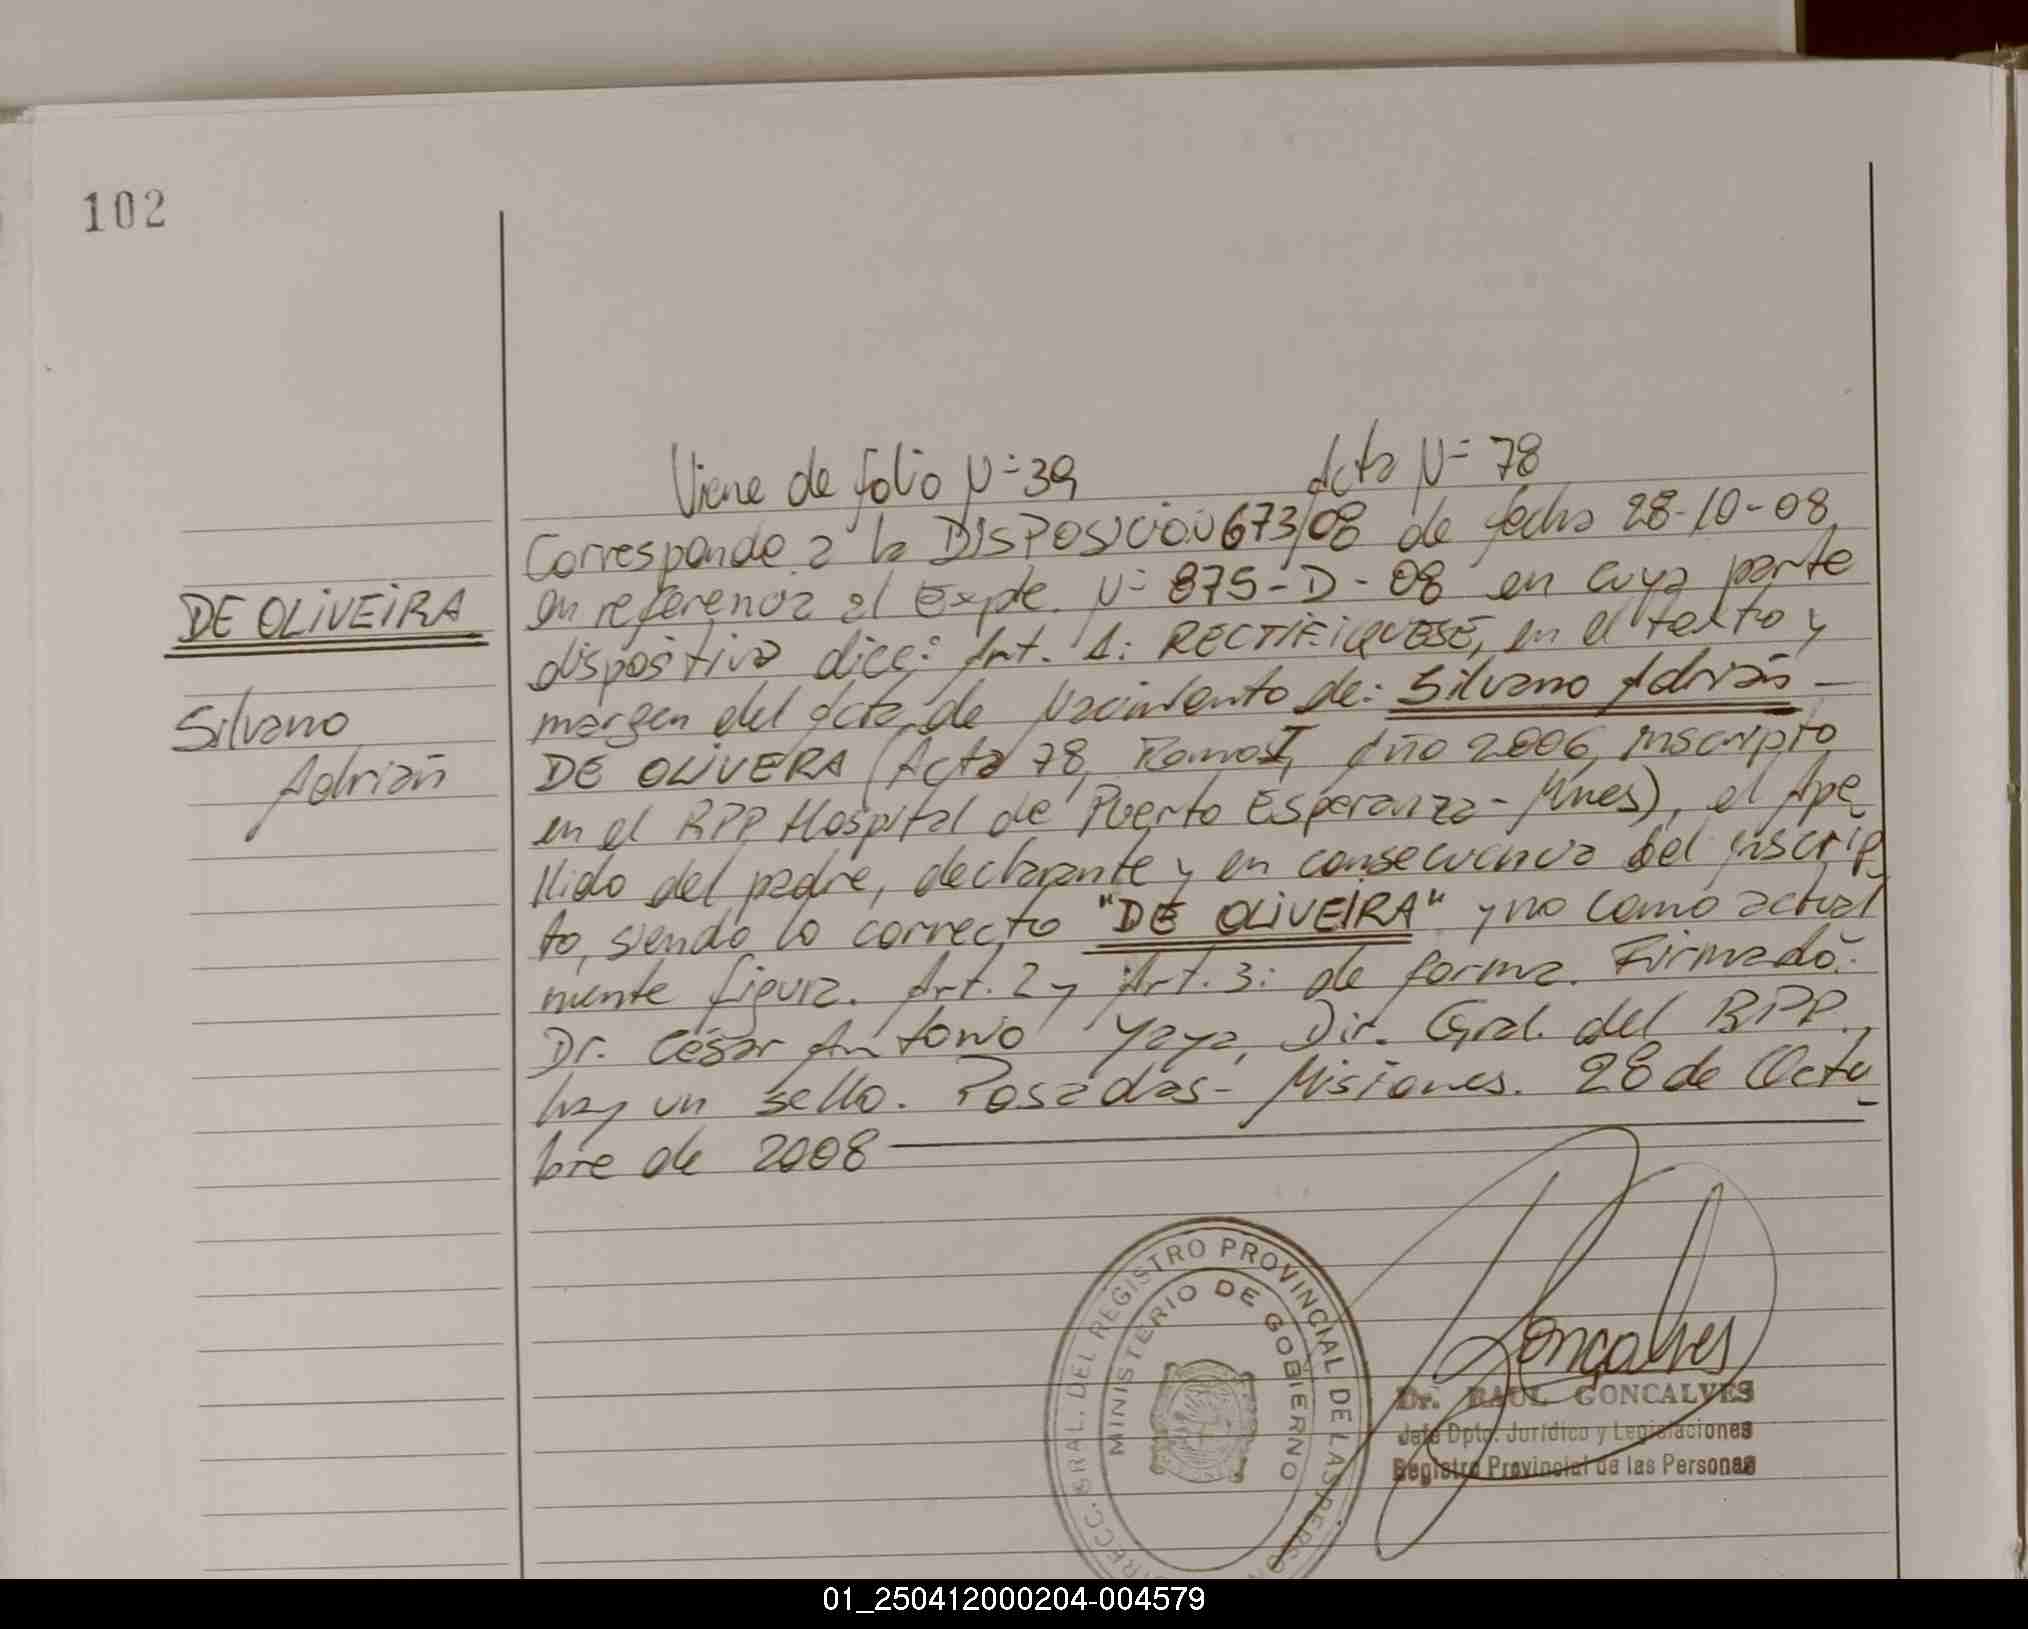 102
Viene de folio Nº 39 Acta Nº 78
Corresponde a la DISPOSICIÓN 673/08 de fecha 28-10-08,
en referencia al Expte. Nº 875-D-08 en cuya parte
dispositiva dice: Art. 1: RECTIFIQUESE, en el texto y
margen del Acta de Nacimiento de: Silvano Adrián -
DE OLIVERA (Acta 78, Tomo I, Año 2006, inscripto
en el RPP Hospital de Puerto Esperanza - Mnes), el Ape_
llido del padre, declarante y en consecuencia del inscrip_
to, siendo lo correcto "DE OLIVEIRA" y no como actual
mente figura. Art. 2 y Art. 3: de forma. Firmado:
Dr. César Antonio Yaya, Dir. Gral. del RPP.,
hay un sello. Posadas - Misiones. 28 de Octu_
bre de 2008
DE OLIVEIRA
Silvano
Adrián
DIRECC. GRAL. DEL REGISTRO PROVINCIAL DE LAS PERSON
MINISTERIO DE GOBIERNO
Goncalves
Dr. RAUL GONCALVES
Jefe Dpto. Jurídico y Legislaciones
Registro Provincial de las Personas
01_250412000204-004579